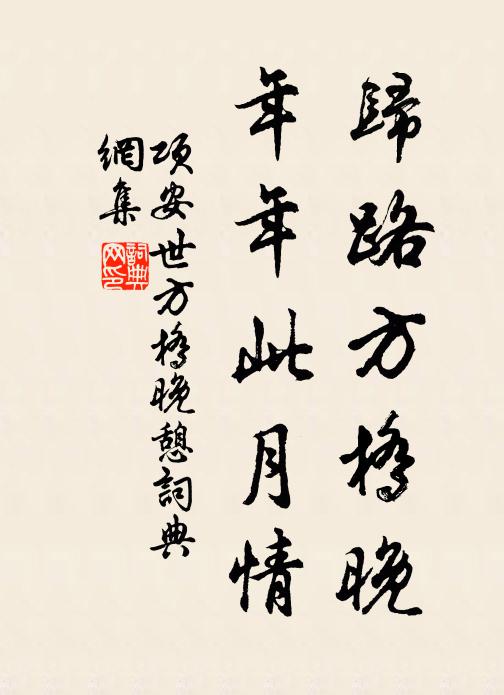 歸路方橋晚
年年此月情
項安世方橋晚憩詞典
網集
詞典
网印